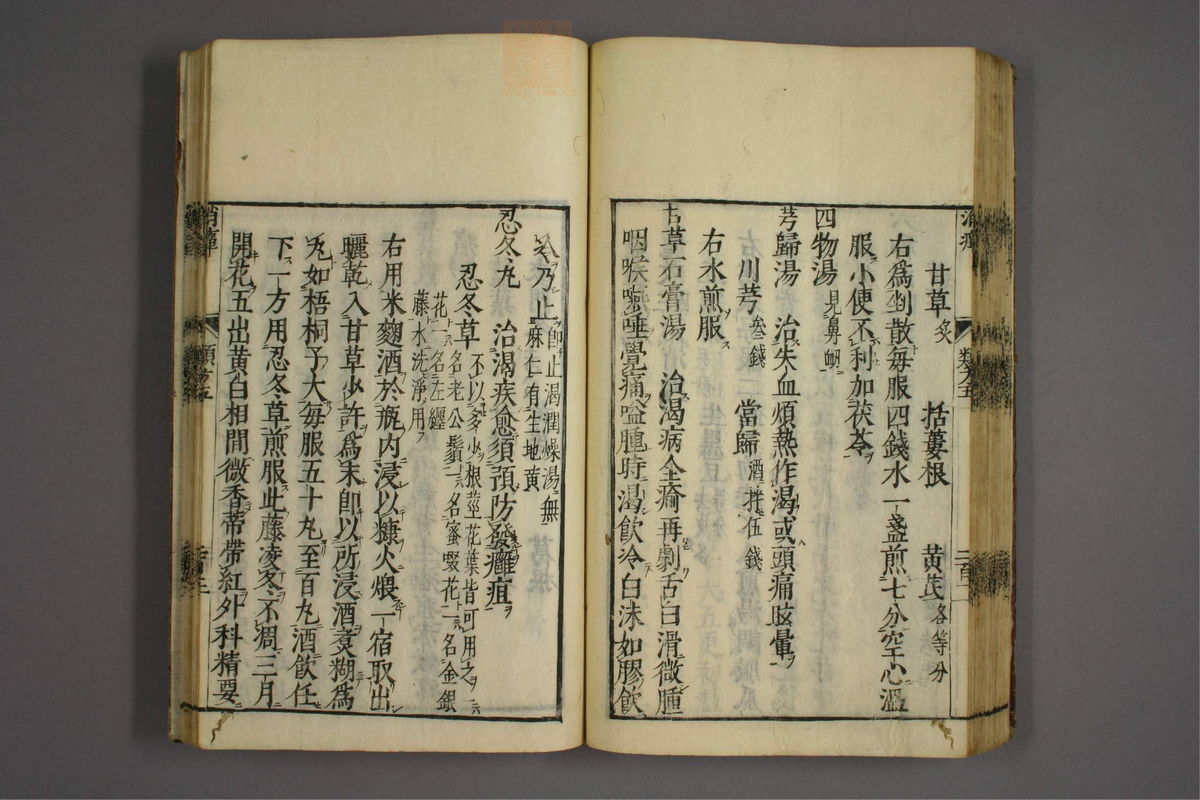 甘草炙　括蔞根　黄茋各等分
右爲剉散每服四錢水一盞煎七分空心溫
服小便不利加茯苓
四物湯見鼻衂
芎歸湯　治失血煩熱作渴或頭痛眩暈
右川芎叁錢　當歸酒拌伍錢
右水煎服
草石膏湯　治渴病全瘉再劇舌白滑微腫
咽喉嚥唾覺痛嗌腫時渴飮冷白沫如膠飮
冷乃止卽止渴潤燥湯無
麻仁有生地黄
忍冬丸　治渴疾愈須預防發癰疽
忍冬草不以多少根莖花葉皆可用之
一名老公鬚一名蜜啜花一名金銀
花一名左纏
藤水洗淨用
右用米麴酒於瓶内浸以糠火煨一宿取出
曬乾入甘草少許爲末卽以所浸酒煑糊爲
丸如梧桐子大每服五十丸至百丸酒飮任
下一方用忍冬草煎服此藤凌冬不凋三月
開花五出黄白相間微香蒂帶紅外科精要